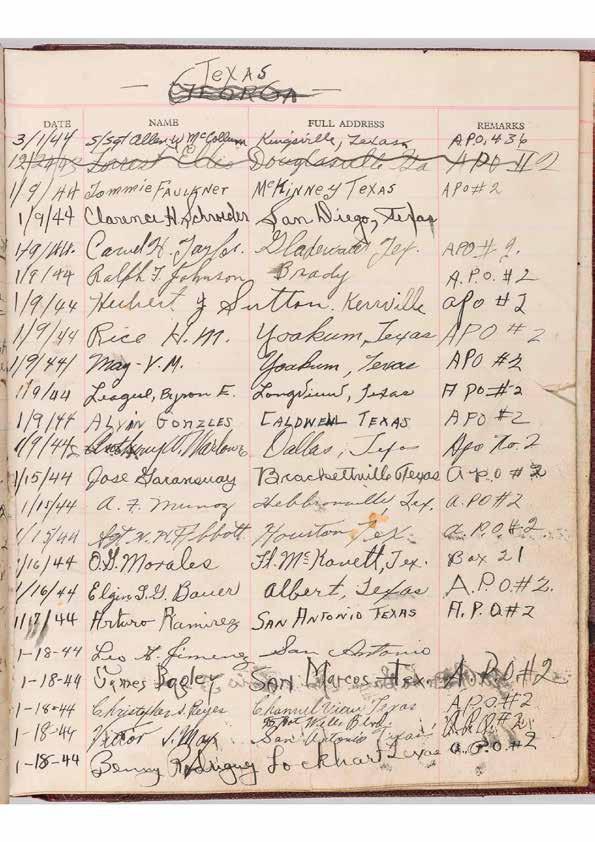 Texas
Georgia
DATE NAME FULL ADDRESS REMARKS
3/1/44 S/Sgt Allen W McCollum Kingsville, Texas A.P.O. 436
Ellis Douglasville Ga APO # 2
1/9/44 Tommie Faulkner McKinney Texas APO #2
1/9/44 Clarence H. Schroeder San Diego, Texas
1/9/44 H. Taylor. Tex. APO # 2.
1/9/44 Ralph F. Johnson Brady A.P.O. #2
1/9/44 Hubert J Sutton. Kerrville apo #2
1/9/44 Rice H.M. Yoakum, Texas APO # 2
1/9/44 May - V.M. Yoakum, Texas APO #2
1/9/44 Byron E. Longview, Texas A PO #2
1/9/44 ALVIN GONZLES CALDWELL TEXAS APO #2
1/9/44 W. Marlowe Dallas, Texas Apo No. 2
1/15/44 Jose Brackettville Texas a.p.o #2
1/15/44 A. F. Munoz Hebbronville Tex. a.PO #2
1/15/44 Sgt W. W. Abbott Houston Tex. a.P.O. #2
1/16/44 O.G. Morales Ft. McKavett, Tex. Box 21
1/16/44 Elgin Bauer Albert, Texas A.P.O. #2.
1/17/44 Arturo Ramirez SAN ANTONIO TEXAS A.P.O. #2
1-18-44 Leo Jimenez San Antonio
1-18-44 James Bagley SAN Marcos Tex. A.P.O #2
1-18-44 Reyes Channelview Texas A.P.O #2
1-18-44 Victor San Antonio Texas #2
1-18-44 Benny Rodriguez Lockhart Texas a.P.O. #2